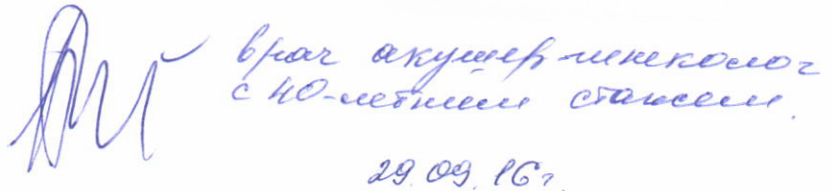 врач акушер-гинеколог
с 40-летним стажем.
29.09.16г.